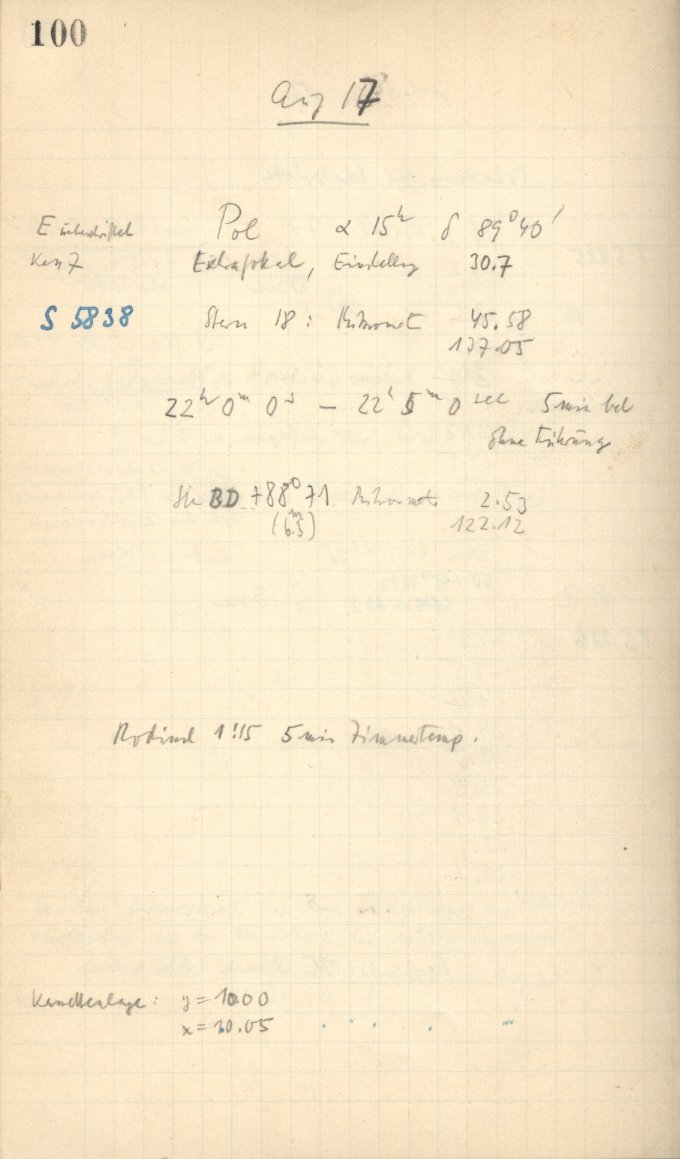 100
Aug 17
Pol α 15h δ 89°40'
Kass 7 Extrafokal, Einstellung 30.7
S 5838 Stern 18: Mikromet 45.58
137.05
22h 0m 0s — 22h 5m 0sec 5 min bel
ohne Führung
BD +88° 71 Mikrometer 2.53
(6.5m) 122.12
Rodinal 1:15 5 min Zimmertemp.
Kassettenlage: y = 10.00
x = 30.05